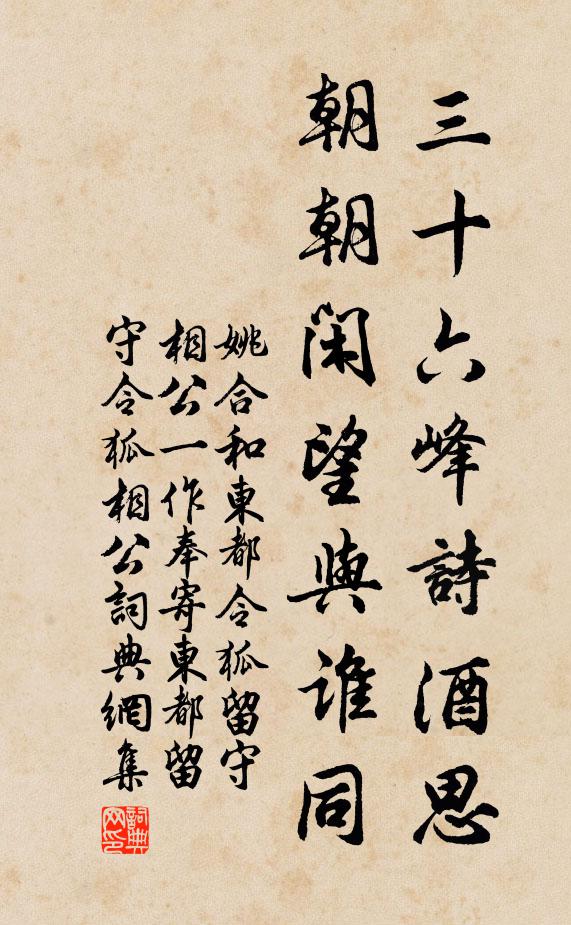 三十六峰詩酒思
朝朝閑望與誰同
姚合和東都令狐留守
相公一作奉寄東都留
守令狐相公詞典網集
詞典
网印